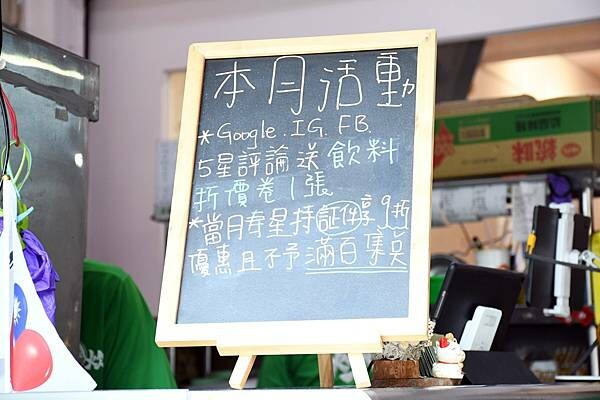 本月活動
*Google.IG.FB.
5星評論送飲料
折價卷1張
*當月壽星持証件享9折
優惠且不予滿百集奌
統味